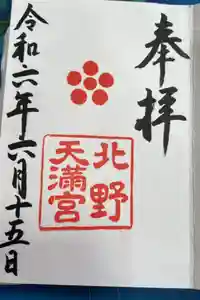 奉拝
北野
天満宮
令和六年六月十五日